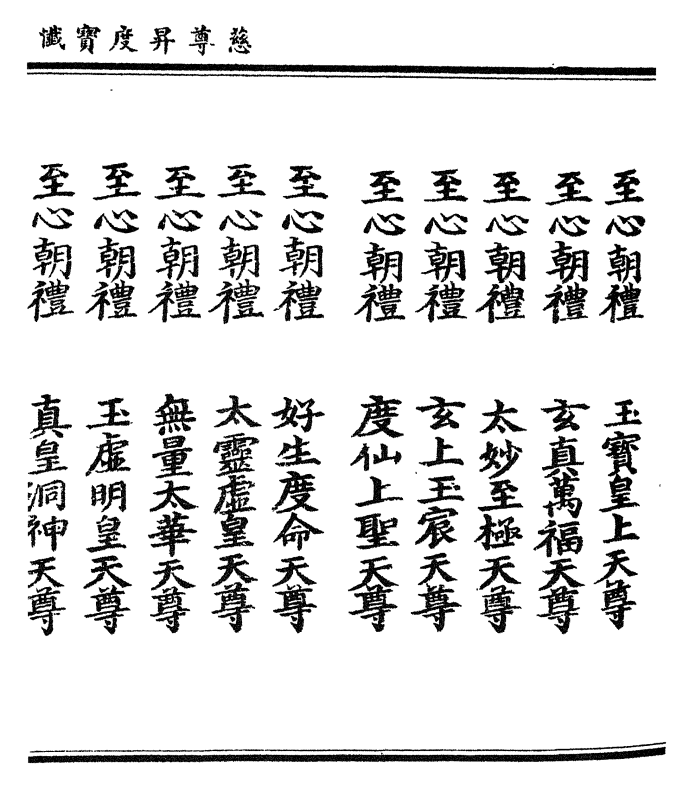 慈尊昇度寶懺
至心朝禮　玉寶皇上天尊
至心朝禮　玄真萬福天尊
至心朝禮　太妙至極天尊
至心朝禮　玄上玉宸天尊
至心朝禮　度仙上聖天尊
至心朝禮　好生度命天尊
至心朝禮　太靈虛皇天尊
至心朝禮　無量太華天尊
至心朝禮　玉虛明皇天尊
至心朝禮　真皇洞神天尊